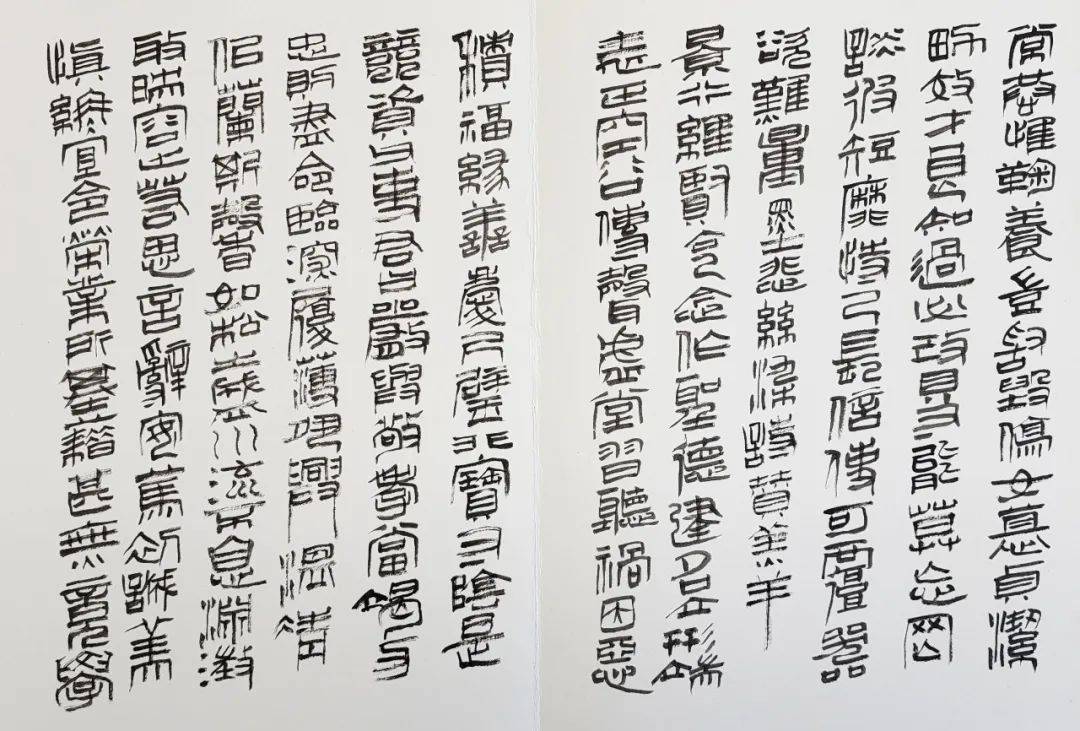 常恭惟鞠養豈敢毀傷女慕貞潔
男效才良知過必改得能莫忘罔
談彼短靡恃己長信使可覆器
欲難量墨悲絲染詩贊羔羊
景行維賢克念作聖德建名立形端
表正空谷傳聲虛堂習聽禍因惡
積福緣善慶尺璧非寶寸陰是
競資父事君曰嚴與敬孝當竭力
忠則盡命臨深履薄夙興溫凊
似蘭斯馨如松之盛川流不息淵澄
取映容止若思言辭安篤初誠美
慎終宜令榮業所基籍甚無竟學